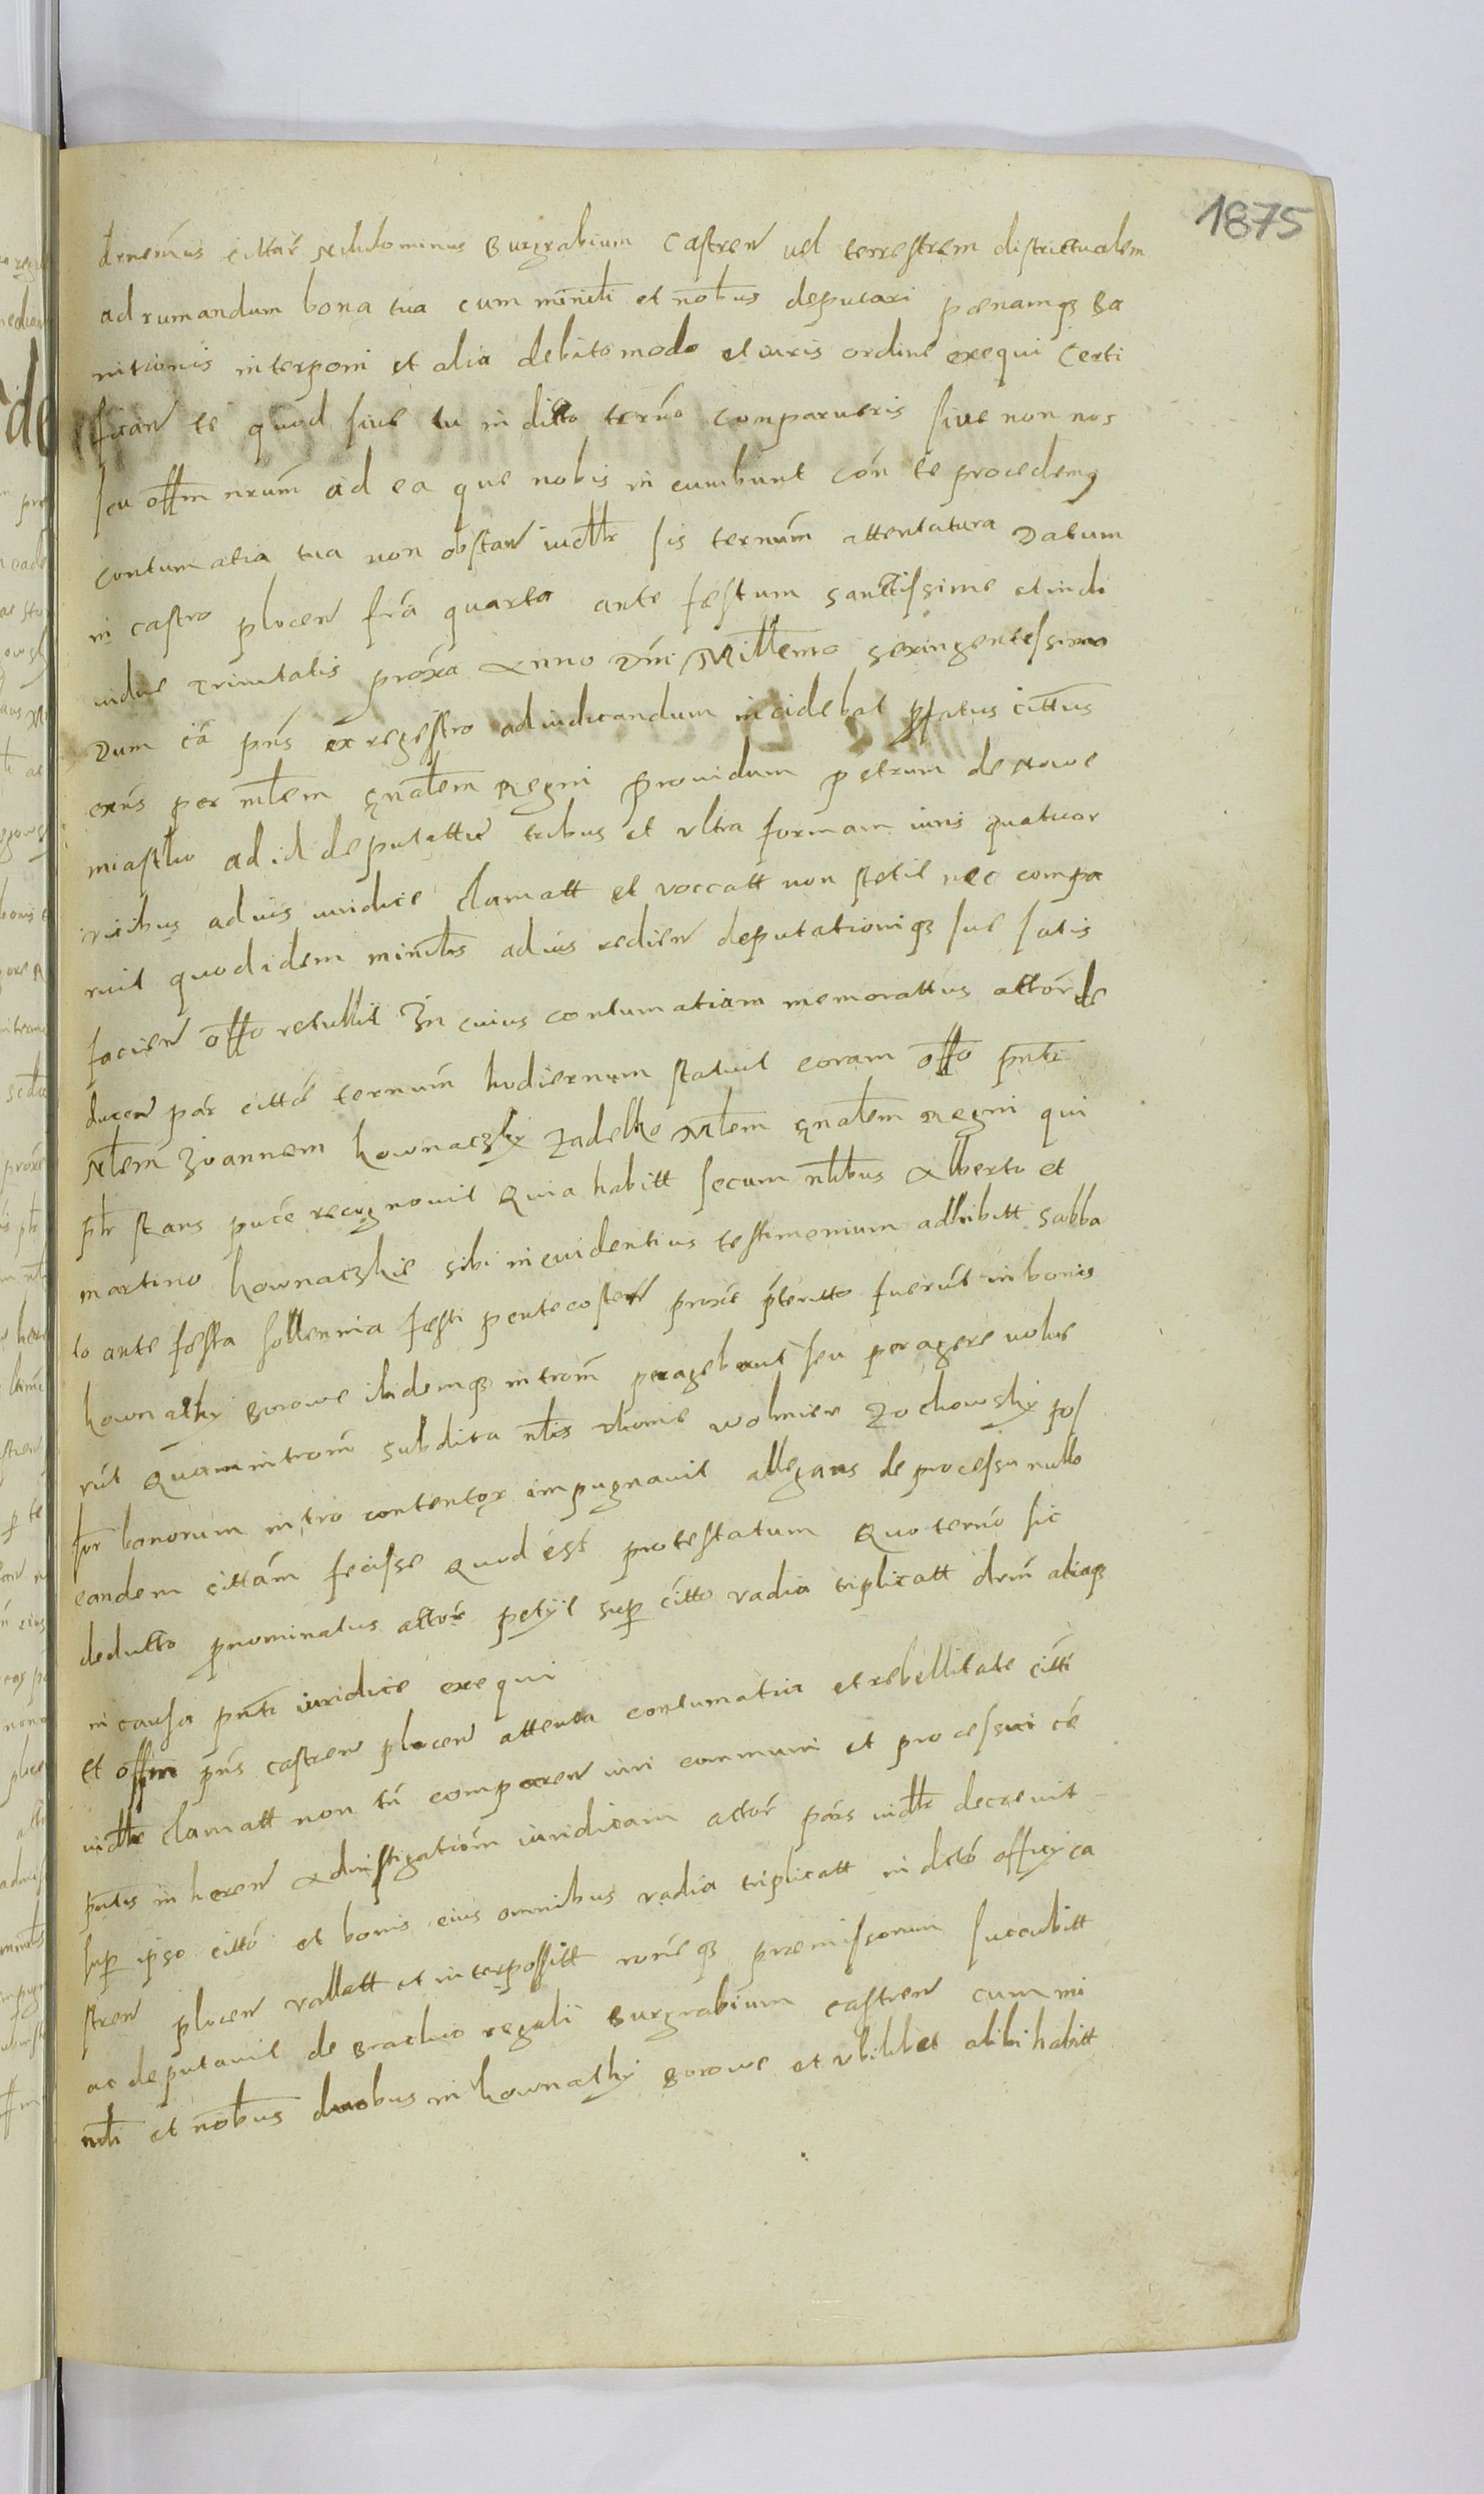 1875
Burgrabium Castren vel terrestrem districtualem
ad rumandum bona tua cum minrli et nobus deputari pœnamqȝ Ba
nitionis interponi et alia debito modo et iuris ordine exequi Certi
fican te quod siue tu in ditto termo comparueris siue non nos
seu offm nrum ad ea que nobis incumbunt con te procedemꝰ
Contumatia tua non obstan sis termum attentatura Datum
in castro plocen fra quarta ante festum sanctissime et indi
uidue Trinitatis proxa Anno Dni Millemo sexingentessimo
Dum ca pns ex regestro adiudicandum incidebat pfatus cittus
exns per mlem gnalem Regni prouidum petrum de nowe
miastko ad id deputattu tribus et vltra formam iuris quatuor
vicibus ad ius iuridice clamatt et voccatt non stetit nec compa
ruit quod idem minrlis ad ius redien deputationiqȝ sue satis
facien offo retullit In cuius contumatiam memorattus attor de
ducen par citto termum hodiernum statuit coram offo pnti
Mlem Joannem kownaczky Zadelko Mlem gnalem Regni qui
ptr stans puce recognouit Quia habitt secum nlibus Alberto et
martino kownaczkie sibi in euidentius testimonium adhibitt sabba
to ante festa sollennia festi pentecosten proxe pteritto fuerut in bonis
kownathy Borowe ibidemqȝ introm peragebant seu peragere volue
rut Quam introm subdita nlis Zochowsky pos
sor bonorum intro contentor impugnauit allegans de processu nullo
eandem cittam fecisse Quod est protestatum Quo termo sic
dedutto prnominatus attor petyit sup citto vadia triplicatt drm aliaqȝ
in causa pnti iuridice exequi
Et offm pns castren plocen attenta contumatia et rebellitate citti
iudtte clamatt non tn comparen iuri communi et processui ce
pntis inheren Ad instigatiom iuridicam actor pars decreuit
sup ipso citto et bonis eius omnibus vadia triplicatt in dcto officy ca
stren plocen vallatt et interpossitt roneqȝ præmissorum succubitt
ac deputauit de Brachio regali Burgrabium castren cum mi
nrli et nobus duobus in kownathy Borowe et vbilibet alibi habitt